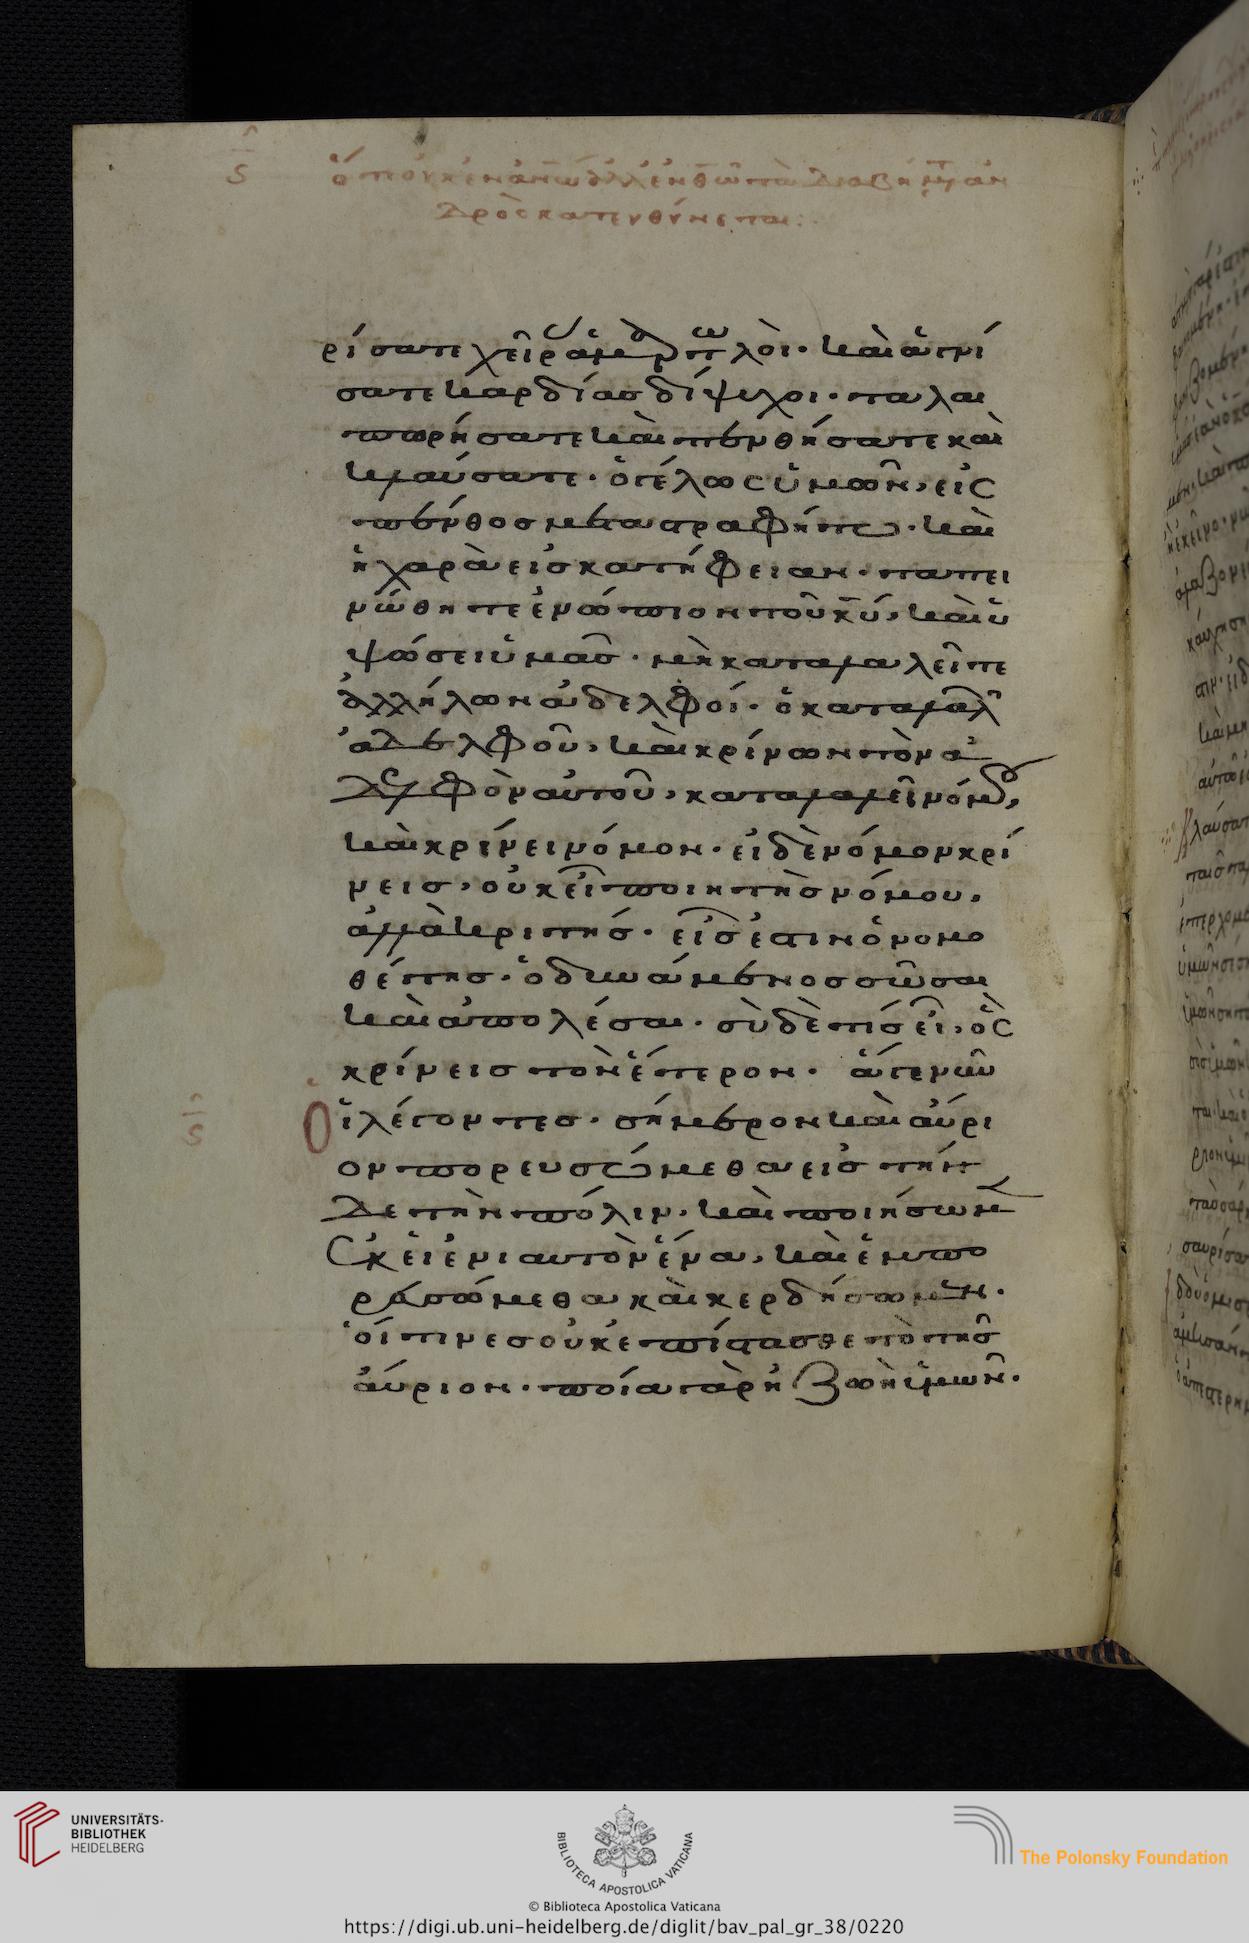 ϛ ὅτι οὐκ ἐν ἀνῶ ἀλλ' ἐν θῶ τὰ διαβήματα ἀν
δρὸς κατευθύνεται:
ρίσατε χεῖρας ἁμαρτωλοὶ· καὶ ἁγνί
σατε καρδίας δίψυχοι· ταλαι
πωρήσατε καὶ πενθήσατε καὶ
κλαύσατε· ὁ γέλως ὑμῶν, εἰς
πένθος μεταστραφήτω· καὶ
ἡ χαρὰ εἰς κατήφειαν· ταπει
νώθητε ἐνώπιον τοῦ κυ, καὶ ὑ
ψώσει ὑμᾶς· μὴ καταλαλεῖτε
ἀλλήλων ἀδελφοί· ὁ καταλαλῶν
ἀδελφοῦ, καὶ κρίνων τὸν ἀ
δελφὸν αὐτοῦ, καταλαλεῖ νόμου,
καὶ κρίνει νόμον· εἰ δὲ νόμον κρί
νεις, οὐκ εἶ ποιητὴς νόμου,
ἀλλὰ κριτής· εἷς ἐστιν ὁ νομο
θέτης· ὁ δυνάμενος σῶσαι
καὶ ἀπολέσαι· σὺ δὲ τίς εἶ, ὃς
κρίνεις τὸν ἕτερον· ἄγε νῦν
ϛ Οἱ λέγοντες· σήμερον καὶ αὔρι
ον πορευσώμεθα εἰς τήν
δε τὴν πόλιν· καὶ ποιήσωμεν
ἐκεῖ ἐνιαυτὸν ἕνα, καὶ ἐμπο
ρευσώμεθα καὶ κερδήσωμεν·
οἵτινες οὐκ ἐπίστασθε τὸ τῆς
αὔριον· ποία γὰρ ἡ ζωὴ ὑμῶν·
UNIVERSITÄTS-
BIBLIOTHEK
HEIDELBERG
BIBLIOTECA APOSTOLICA VATICANA
The Polonsky Foundation
© Biblioteca Apostolica Vaticana
https://digi.ub.uni-heidelberg.de/diglit/bav_pal_gr_38/0220